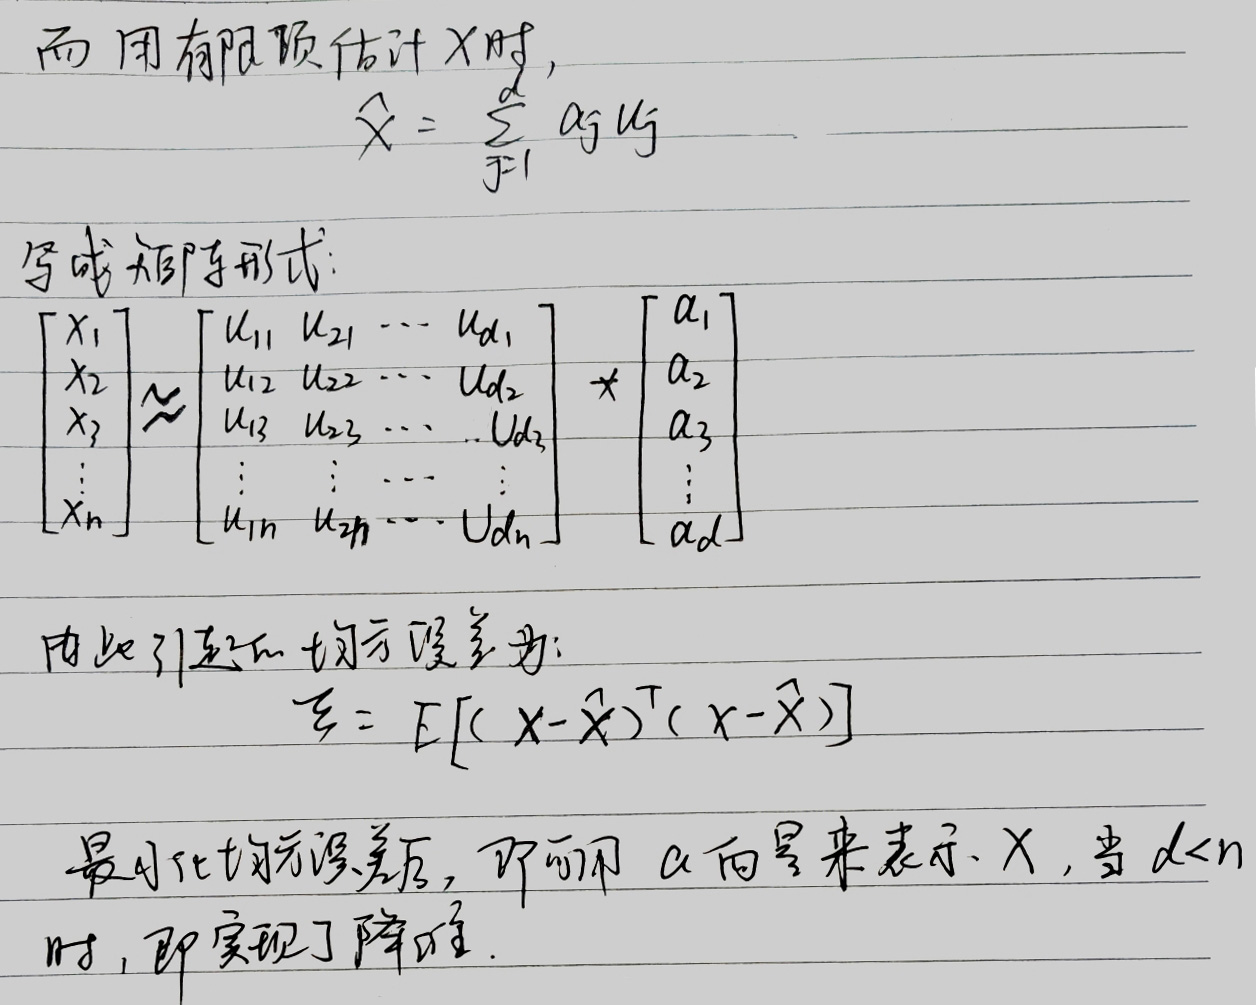 而用有限项估计X时,
X̂ = Σ_{j=1}^{d} a_j u_j
写成矩阵形式:
[x₁ x₂ x₃ ⋮ xₙ] ≈ [u₁₁ u₂₁ ⋯ u_{d1}; u₁₂ u₂₂ ⋯ u_{d2}; u₁₃ u₂₃ ⋯ u_{d3}; ⋮ ⋮ ⋯ ⋮; u₁ₙ u₂ₙ ⋯ u_{dn}] * [a₁ a₂ a₃ ⋮ a_d]
由此引起的均方误差为:
ξ = E[(X-X̂)ᵀ(X-X̂)]
最小化均方误差后, 即可用 a 向量来表示 X, 当 d<n
时, 即实现了降维.